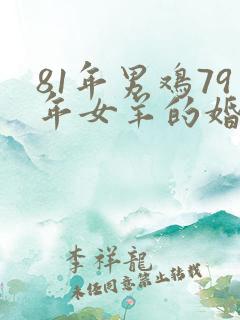 81年男鸡79
年女羊的婚
李祥龍
未经同意禁止转载